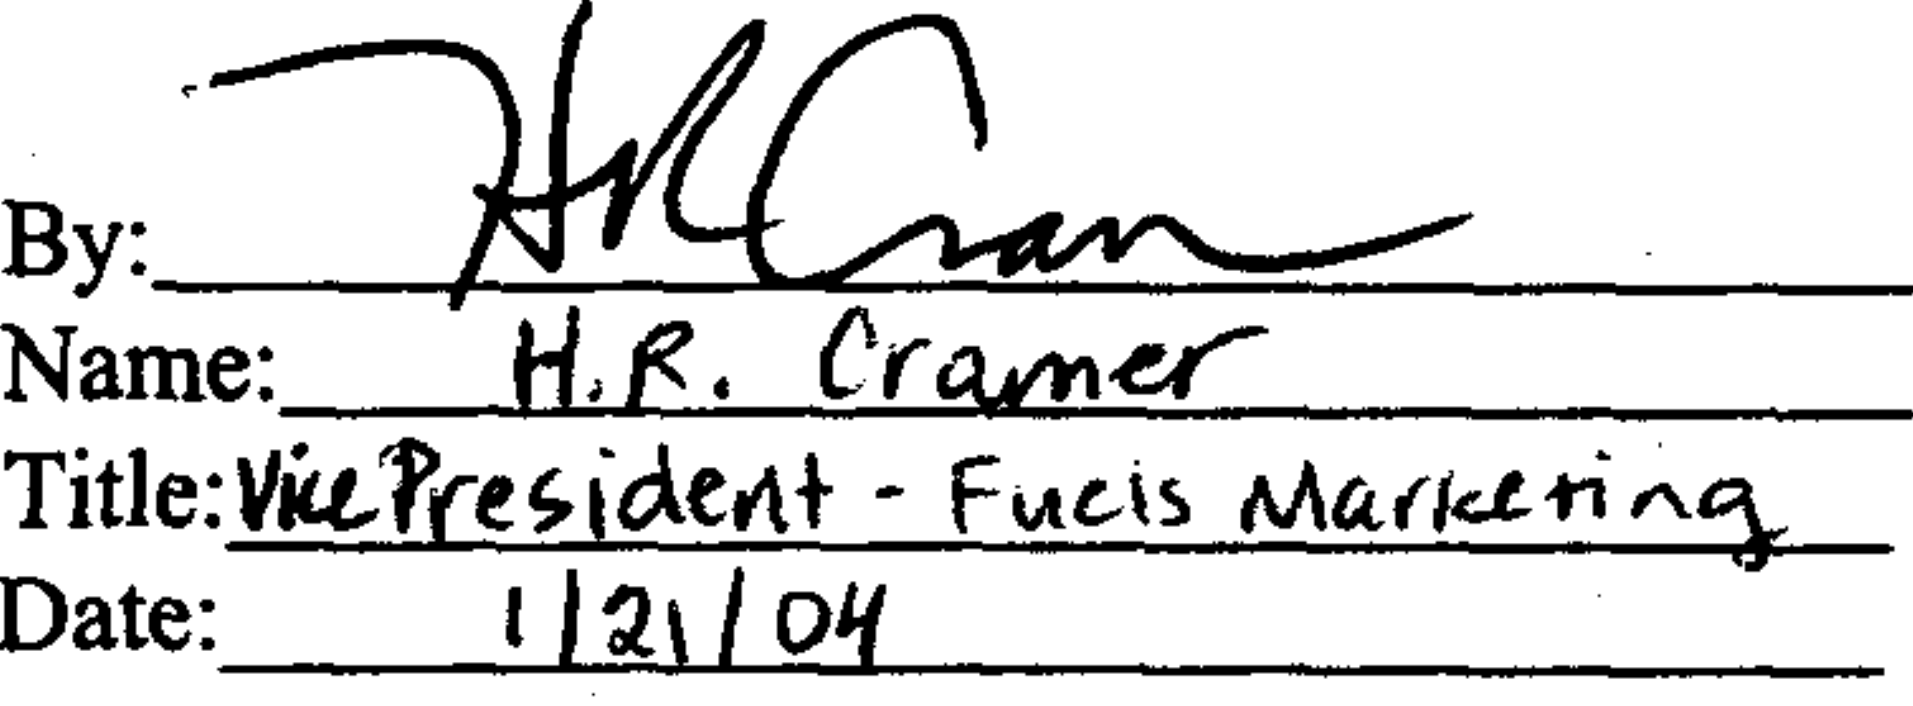 By: HR Cramer
Name: H.R. Cramer
Title: Vice President - Fuels Marketing
Date: 1/21/04